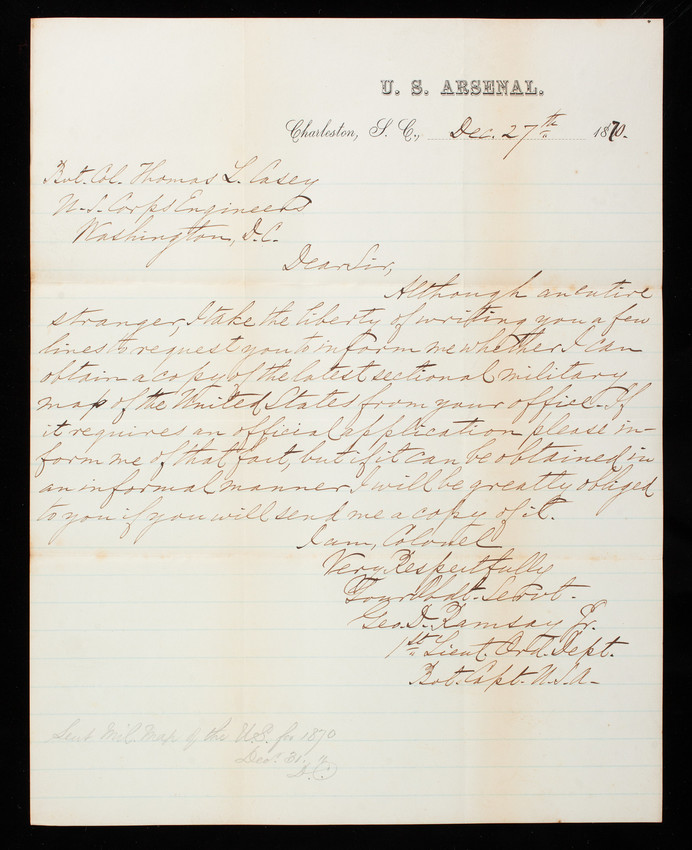 U. S. ARSENAL.
Charleston, S. C., Dec. 27th 1870.
Bvt. Col. Thomas L. Casey
U. S. Corps Engineers
Washington, D.C.
Dear Sir,
Although an entire
stranger, I take the liberty of writing you a few
lines to request you to inform me whether I can
obtain a copy of the latest sectional military
map of the United States from your office. If
it requires an official application please in-
form me of that fact, but if it can be obtained in
an informal manner I will be greatly obliged
to you if you will send me a copy of it.
I am, Colonel
Very Respectfully
Your Obdt. Servt.
Geo. D. Ramsay Jr.
1st Lieut. Ord. Dept.
Bvt. Capt. U.S.A.
Sent Mil. Map of the U.S. for 1870
Dec. 31.